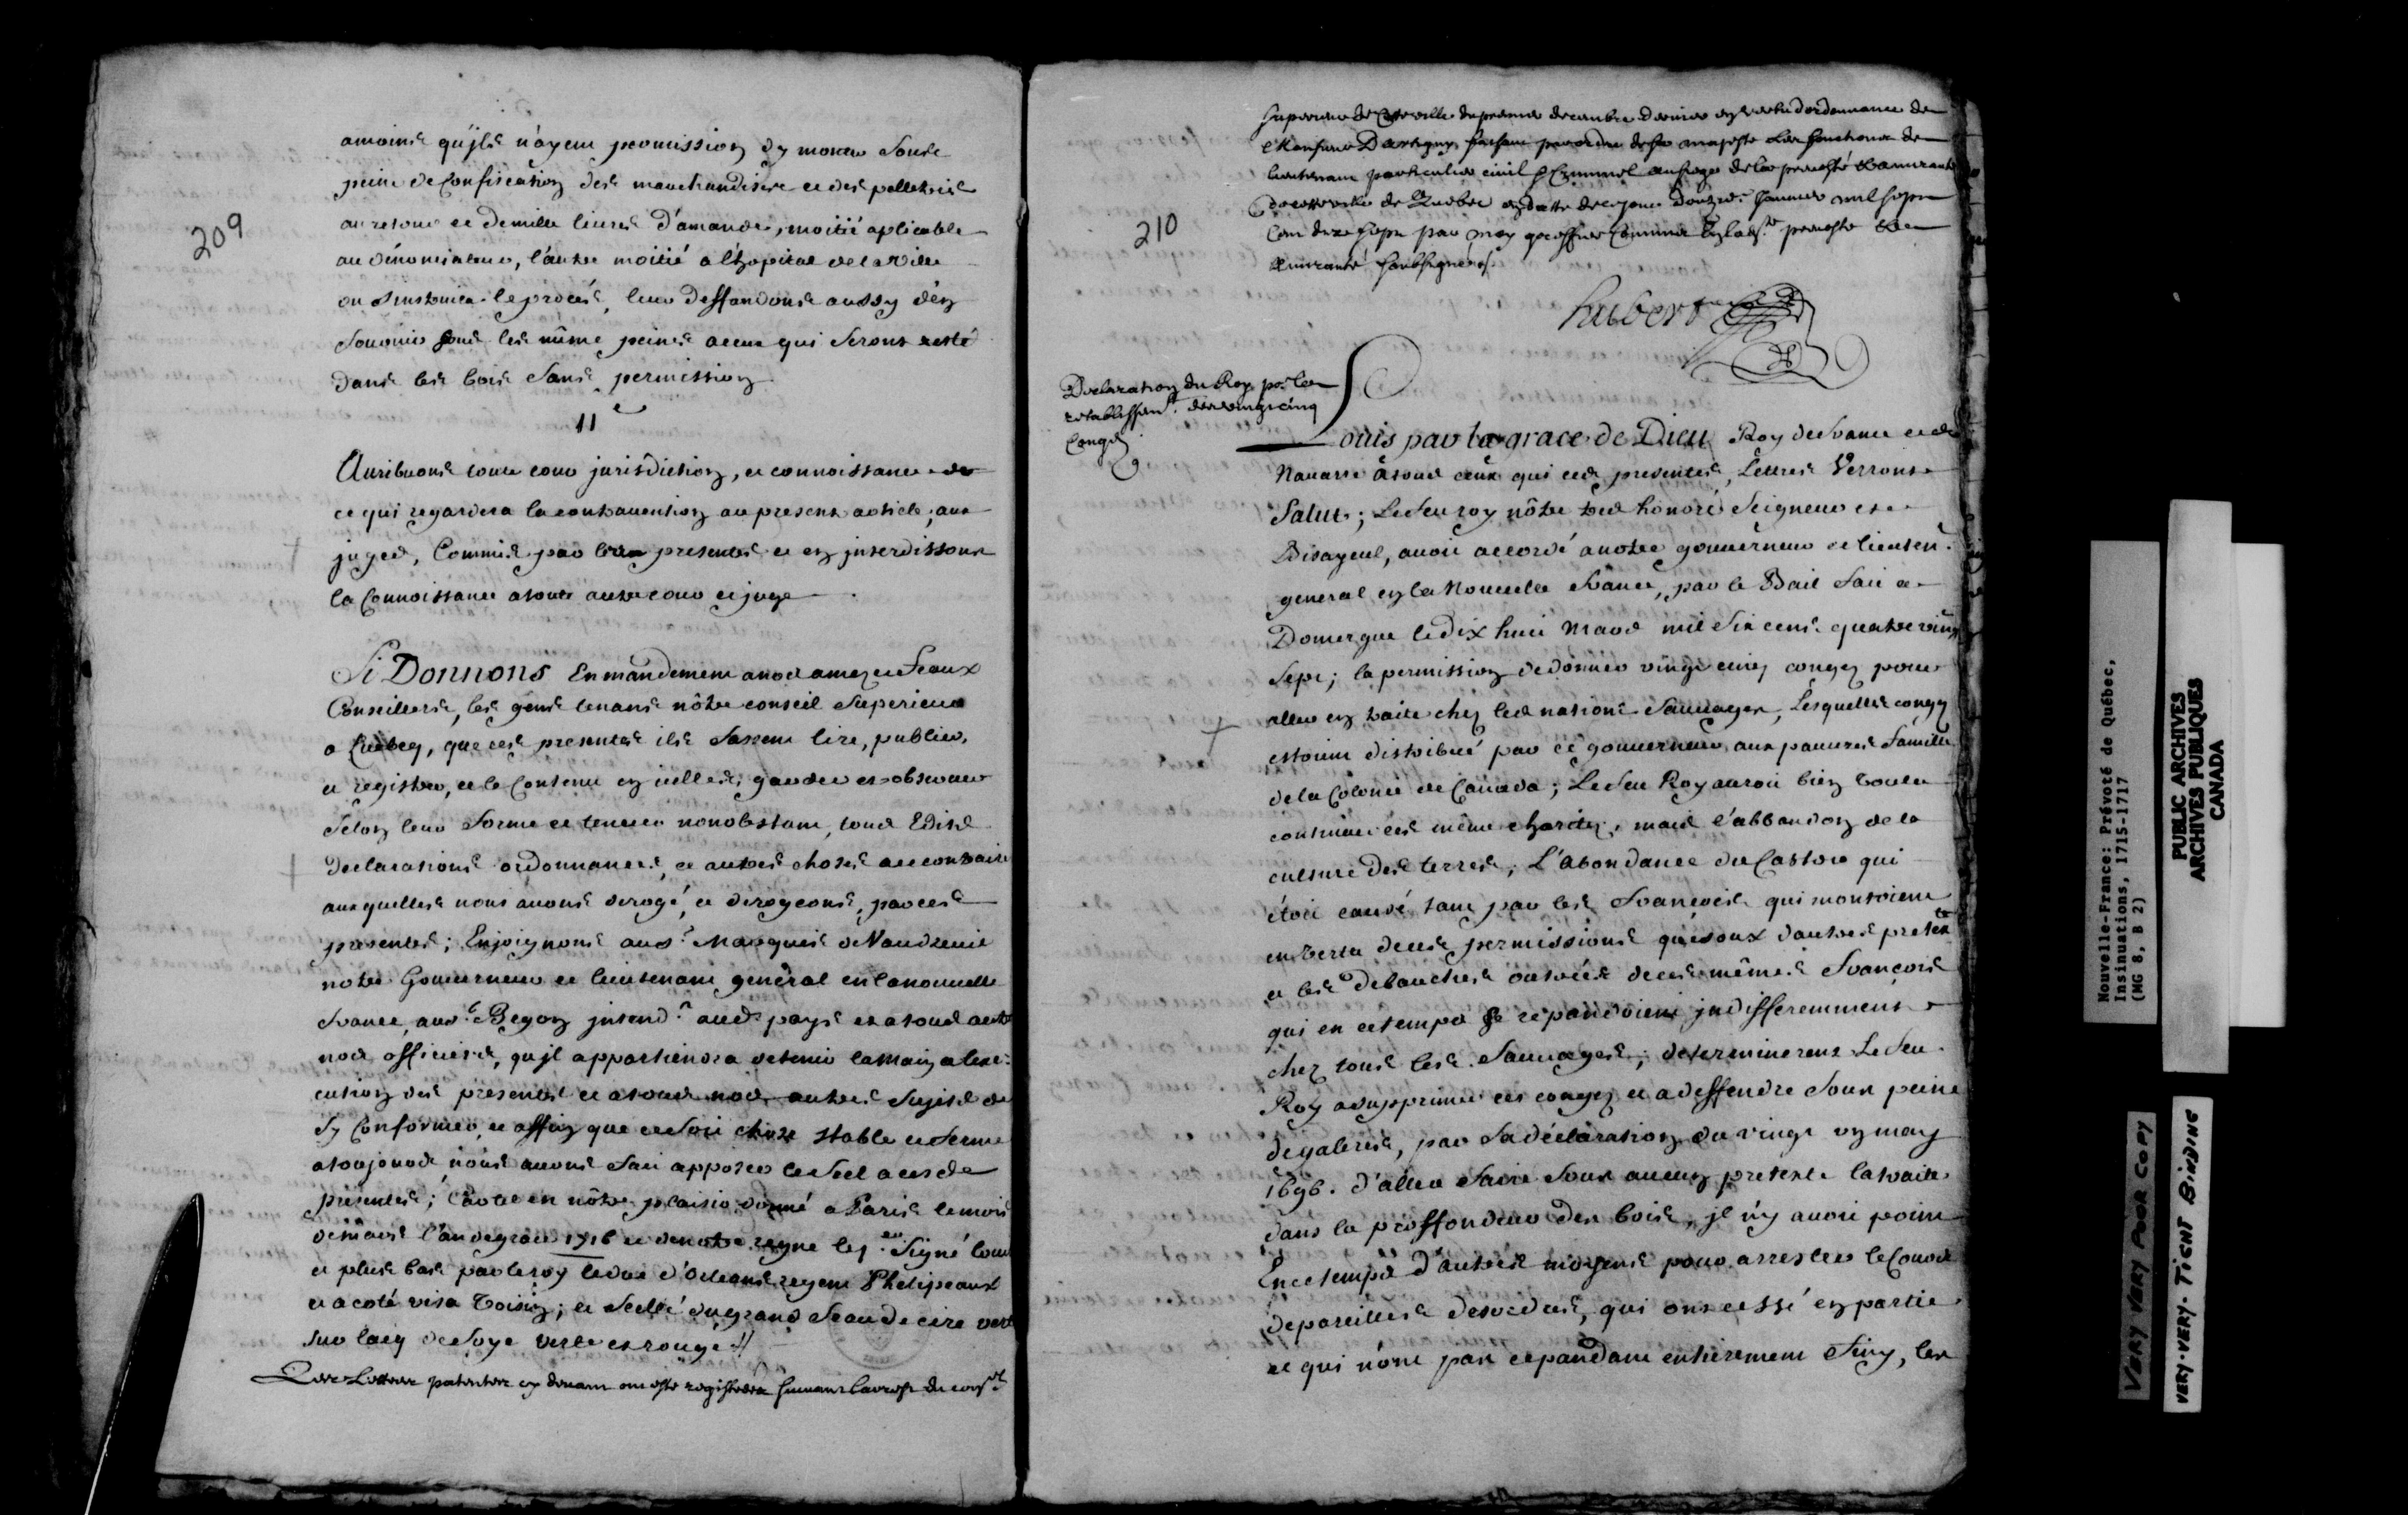 209
amoins qu'ils n'ayent permission d'y monter sous
peine de Confiscation des marchandises et des pelleteries
au retour et de mille livres d'amande, moitié aplicable
au dénonciateur, l'autre moitié a l'hopital de la ville
ou s'instruira le procés, leur deffandons aussy d'en
fournir sous les même peines a ceux qui seront resté
dans les bois sans permission
11e
Attribuons toute cour jurisdiction, et connoissance de
ce qui regardera la contravention au present article, aux
juges, Commis par les presentes et en interdissons
la Connoissance a toute autre cour et juge
Si Donnons En mandement a nos amez et feaux
Conseillers, les gens tenans nôtre conseil Superieur
a Quebeq, que ces presentes ils fassent lire, publier,
et registrer, et le Contenu en icelles, garder et observer
selon leur forme et teneur nonobstant, tous Edits
Declarations ordonnances, et autres choses au contraire
auxquelles nous avons derogé, et dérogeons, par ces
presentes; Enjoignons au Sr. Marquis de Vaudreuil
notre Gouverneur et lieutenant général en la nouvelle
france, au Sr. Begon intend.t aud. pays et a tous autr.
nos officiers, qu'il appartiendra de tenir la main a l'exe-
cution des presentes et a tous nos autres sujets de
s'y Conformer, et affin que ce soit chose stable et ferme
a toujours nous avons fait apposer le scel a cesd.
presentes; Car tel en nôtre plaisir donné a Paris le mois
de mars l'an de grace 1716 et de notre regne le 1.er Signé Louis
et plus bas par le roy le duc d'Orleans regent Phelipeaux
et a coté visa Voisin; et scellé du grand sceau de cire verte
sur lacq de soye verte et rouge //
Les Lettres patentes cy devant ont esté registrées suivant l'arrest du cons.el
210
superieur de Cette ville du premier decembre dernier en vertu d'ordonnance de
Monsieur Dartigny faisant par ordre de sa majesté les fonctions de
lieutenant particulier civil & Criminel au siege de la prevosté & amirauté
de cette ville de Quebec en datte de ce jour douze janvier mil sept
Cent dixe sept par moy greffier Commis En lad.te prevosté &
amirauté soubsigné
hubert
Declaration du Roy po.r le
retablissem.t des vingt cinq
Congés
Louis par la grace de Dieu Roy de france et de
Navarre a tous ceux qui ces presentes Lettres Verront
Salut; Le feu roy nôtre tres honoré Seigneur et
Bisayeul, avoit accordé a notre gouverneur et lieuten.t
general en la Nouvelle france, par le Bail fait a
Domergue le dix huit mars mil six cens quatre vingt
sept; la permission de donner vingt cinq congez pour
aller en traite chez les nations Sauvages, Lesquelles congez
estoient distribué par ce gouverneur aux pauvres famille
de la Colonie de Canada; Le feu Roy auroit bien voulu
continuer ces même charitez, mais l'abbandon de la
culture des terres, L'abondance du Castor qui
étoit causé tant par les françois qui montoient
en vertu de ces permissions que sous d'autres pretexte
et les debauches outrées de ces mêmes françois
qui en ce temps se repandoient indifferemment
chez tous les Sauvages, determinerent Le feu
Roy a supprimer ces congez et a deffendre sous peine
de galeres, par sa déclaration du vingt un may
1696. d'aller faire sous aucun pretexte la traite
dans la proffondeur des bois, il n'y avoit point
En ce temps d'autres moyens pour arrester le Cours
de pareilles desordres, qui ont cessé en partie
et qui n'ont pas cepandant entierement finy, les
Nouvelle-France: Prévoté de Québec,
Insinuations, 1715-1717
(MG 8, B 2)
PUBLIC ARCHIVES
ARCHIVES PUBLIQUES
CANADA
VERY VERY POOR COPY
VERY-VERY-TIGHT BINDING